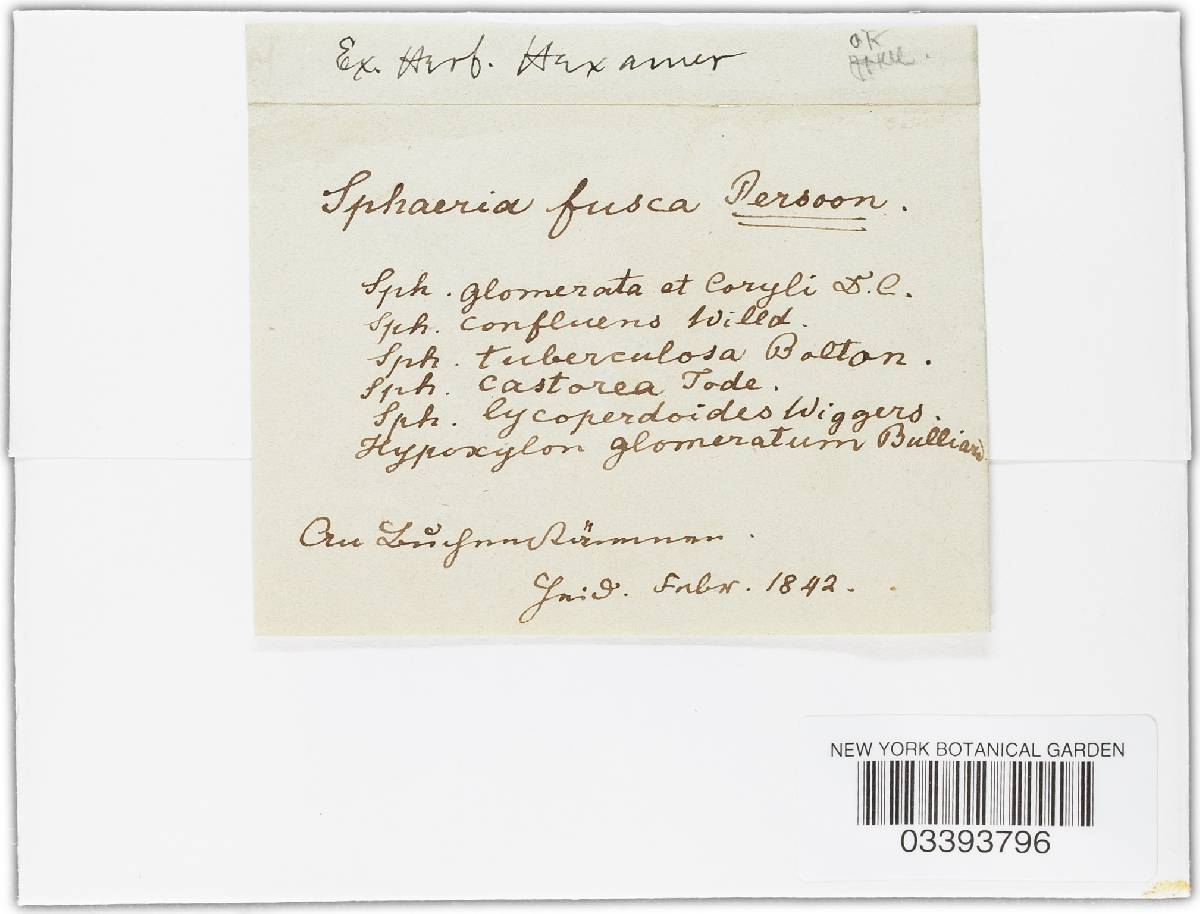 Ex. Herb. Hexamer
OK
Sphaeria fusca Persoon.
Sph. glomerata et Coryli D.C.
Sph. confluens Willd.
Sph. tuberculosa Bolton.
Sph. castorea Tode.
Sph. lycoperdoides Wiggers.
Hypoxylon glomeratum Bulliard
An Buchenstämmen.
Heid. Febr. 1842.
NEW YORK BOTANICAL GARDEN
03393796